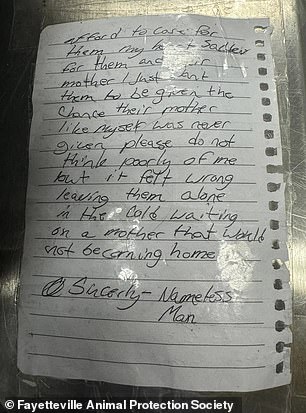 afford to care for
them my heart saddens
for them and their
mother I Just want
them to be given the
Chance their mother
like myself was never
given please do not
think poorly of me
but it felt wrong
leaving them alone
in the cold waiting
on a mother that would
not be coming home
Sincerly - Nameless
Man
© Fayetteville Animal Protection Society